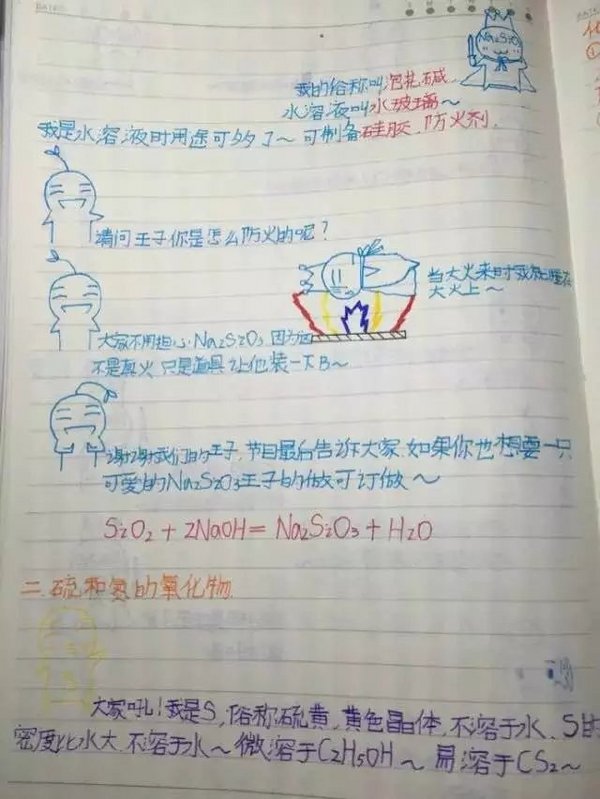 DATE
Na2SiO3
我的俗称叫泡花碱
水溶液叫水玻璃~
我是水溶液时用途可多了~ 可制备硅胶,防火剂.
请问王子你是怎么防火的呢?
当大火来时我就睡在
大火上~
大家不用担心Na2SiO3 因为
不是真火 只是道具 让他装一下B~
谢谢我们的王子,节目最后告诉大家,如果你也想要一只
可爱的Na2SiO3王子的做可订做~
SiO2 + 2NaOH = Na2SiO3 + H2O
二.硫和氮的氧化物.
大家吼!我是S,俗称硫黄,黄色晶体,不溶于水,S的
密度比水大,不溶于水~ 微溶于C2H5OH~ 易溶于CS2~